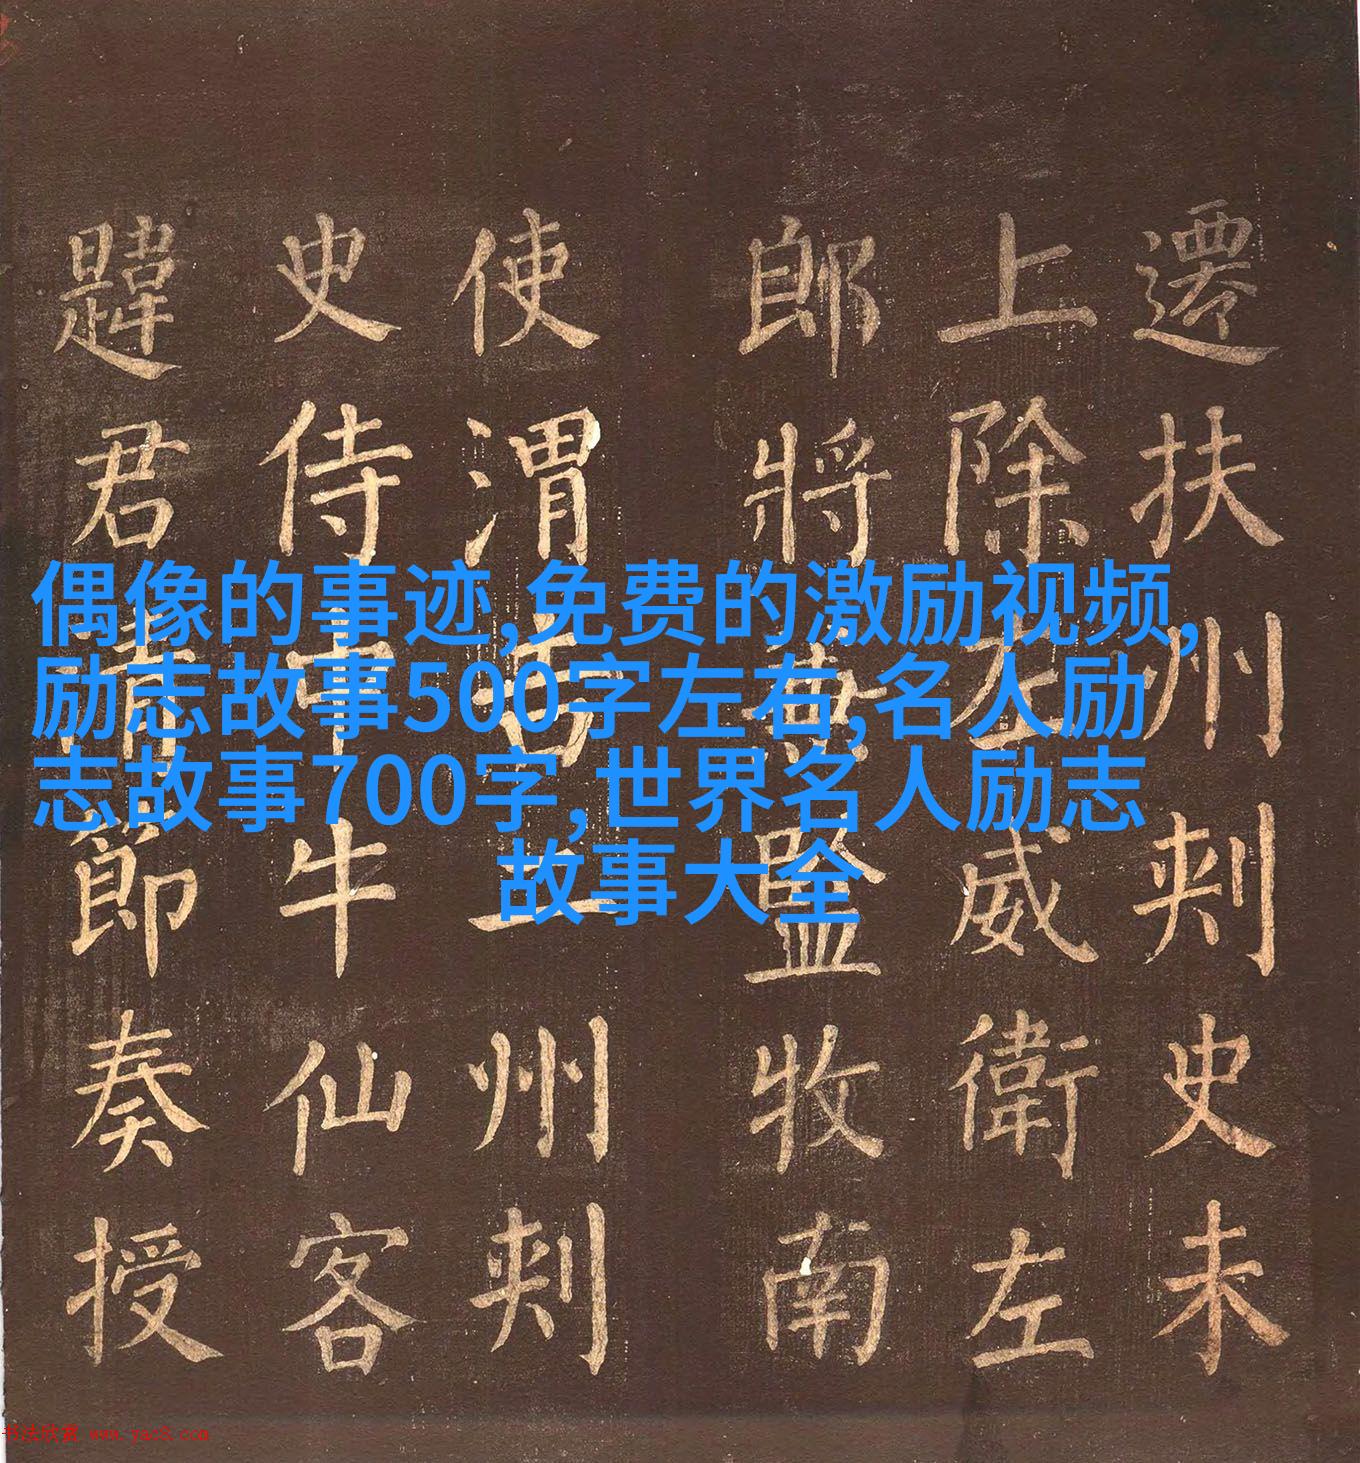 遷扶州刾史未
上除左威衛左
郎將兼監牧南
使渭吉二州刾
史侍中牛仙客
韙君清節奏授
偶像的事迹,免费的激励视频,
励志故事500字左右,名人励
志故事700字,世界名人励志
故事大全
书法欣赏 www.yac8.com